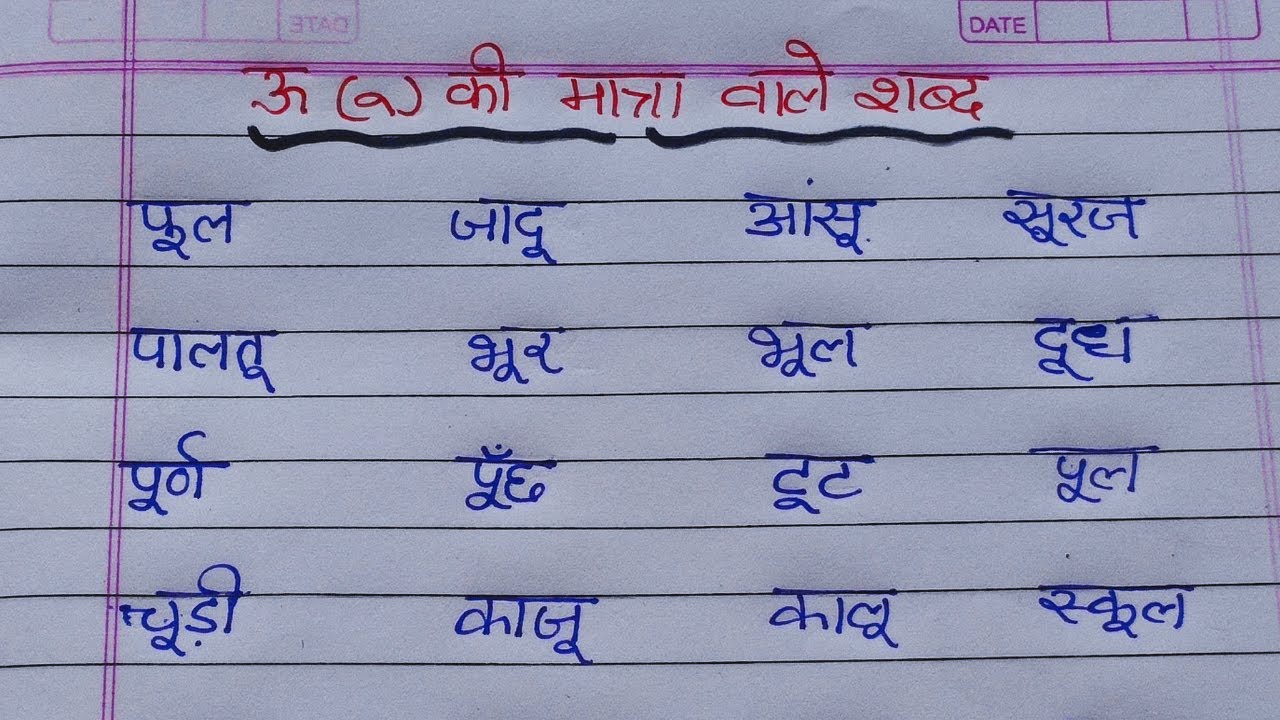 DATE
ऊ (ू) की मात्रा वाले शब्द
फूल जादू आंसू सूरज
पालतू भूर भूल दूध
पूर्ण पूँछ टूट पूल
चूड़ी काजू कालू स्कूल